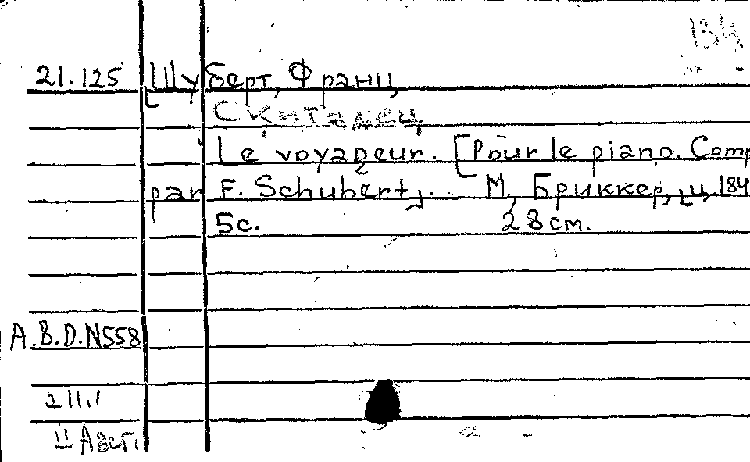 134
21.125 Шуберт, Франц
Скиталец
Le voyageur. [Pour le piano. Comp
par F. Schubert]. М, Бриккер, ц. 184
5с. 28 см.
A.B.D.N558
211.1